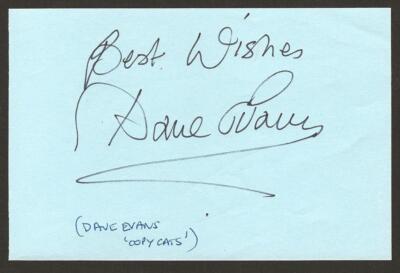 Best Wishes
Dave Evans
(DAVE EVANS
'COPY CATS')